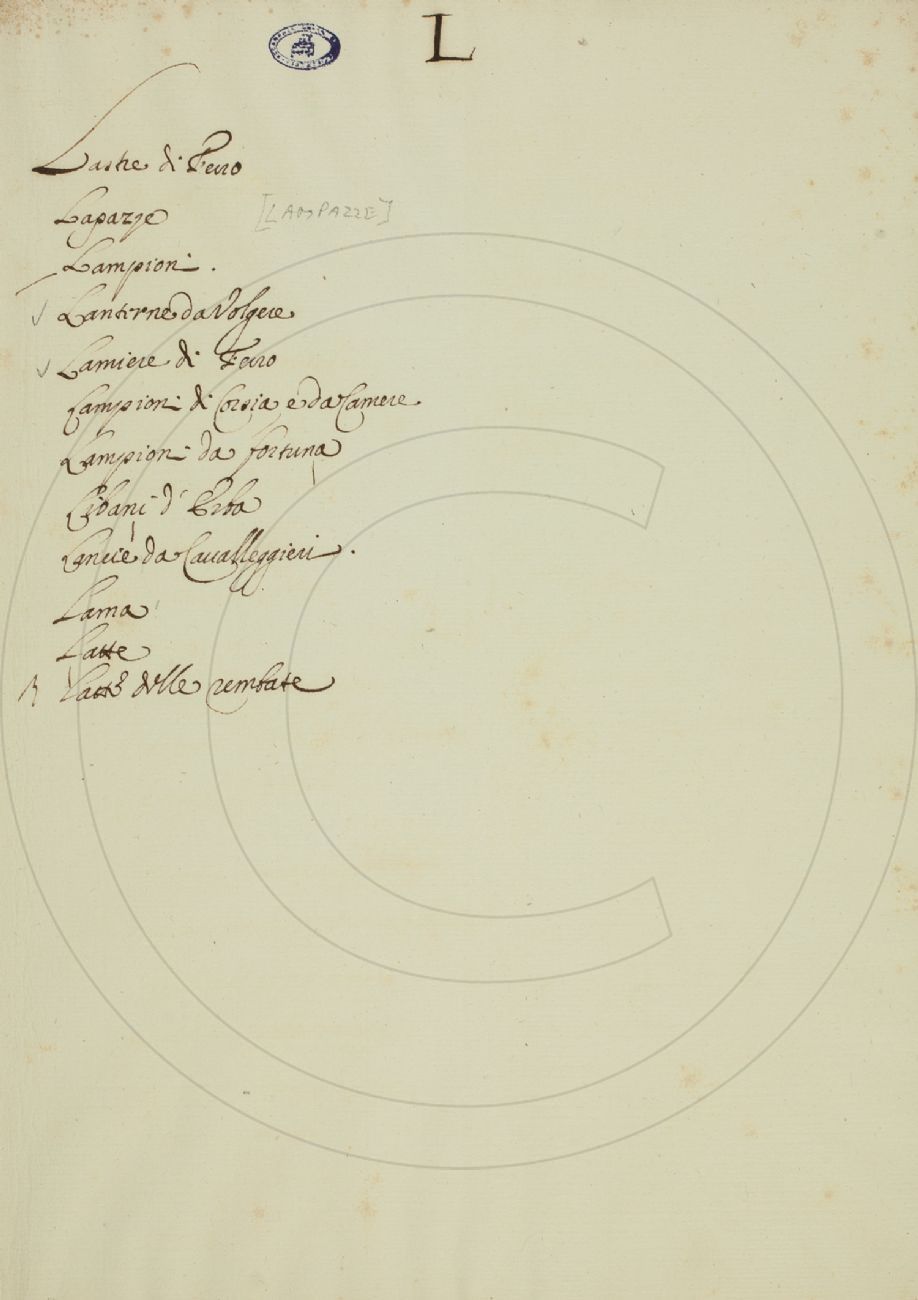 L
Lastre di Ferro
Lapazze
Lampioni.
Lanterne da Volgere
Lamiere di Ferro
Lampioni di Corsia e da Camere
Lampioni da fortuna
Libani d' Erba
Lancie da Cavalleggieri.
Lama
Latte
Latte delle rembate